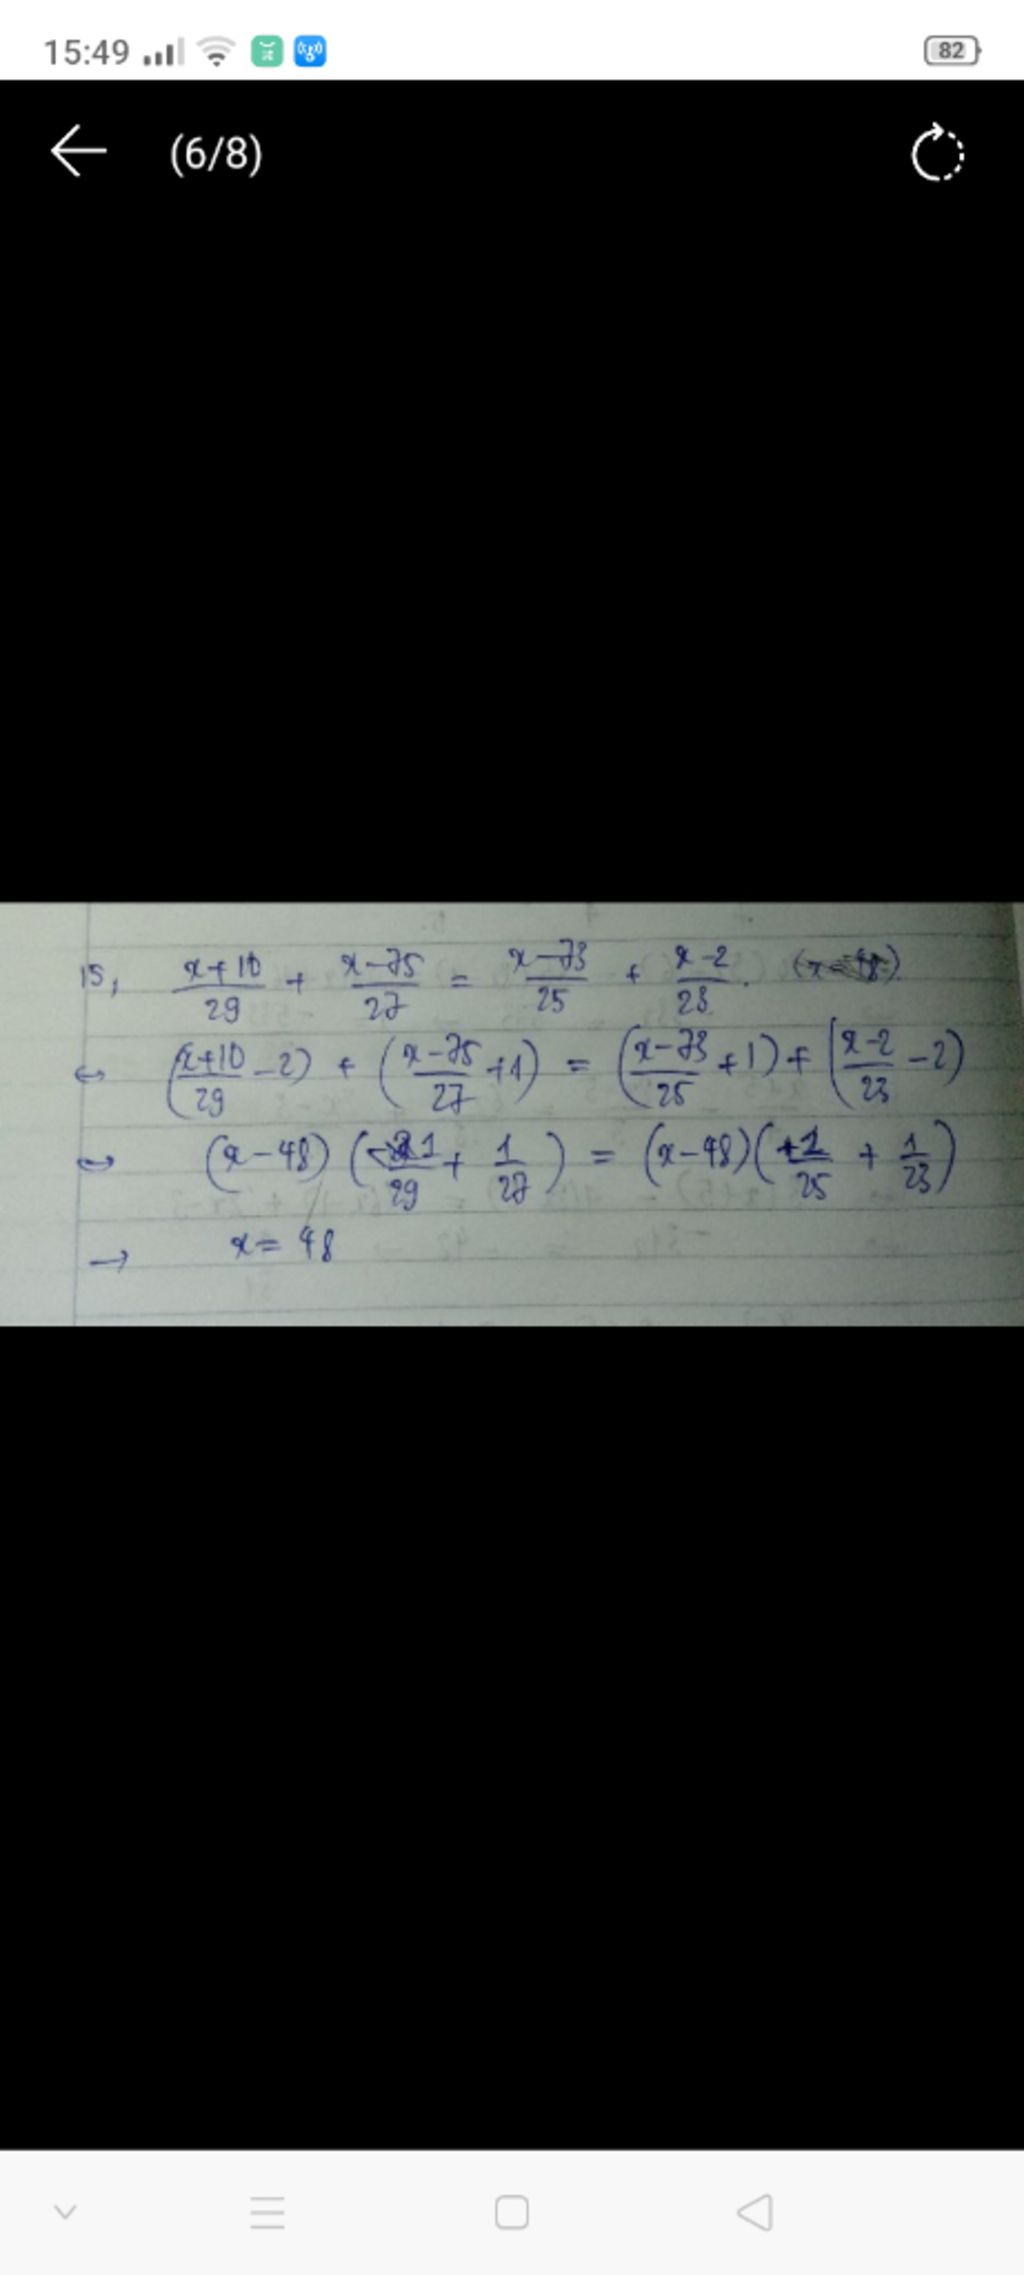 15:49 82
(6/8)
15, \frac{x+10}{29} + \frac{x-75}{27} = \frac{x-73}{25} + \frac{x-2}{23}.
↔ (\frac{x+10}{29} - 2) + (\frac{x-75}{27} + 1) = (\frac{x-73}{25} + 1) + (\frac{x-2}{23} - 2)
↔ (x-48) (\frac{1}{29} + \frac{1}{27}) = (x-48) (\frac{1}{25} + \frac{1}{23})
→ x = 48